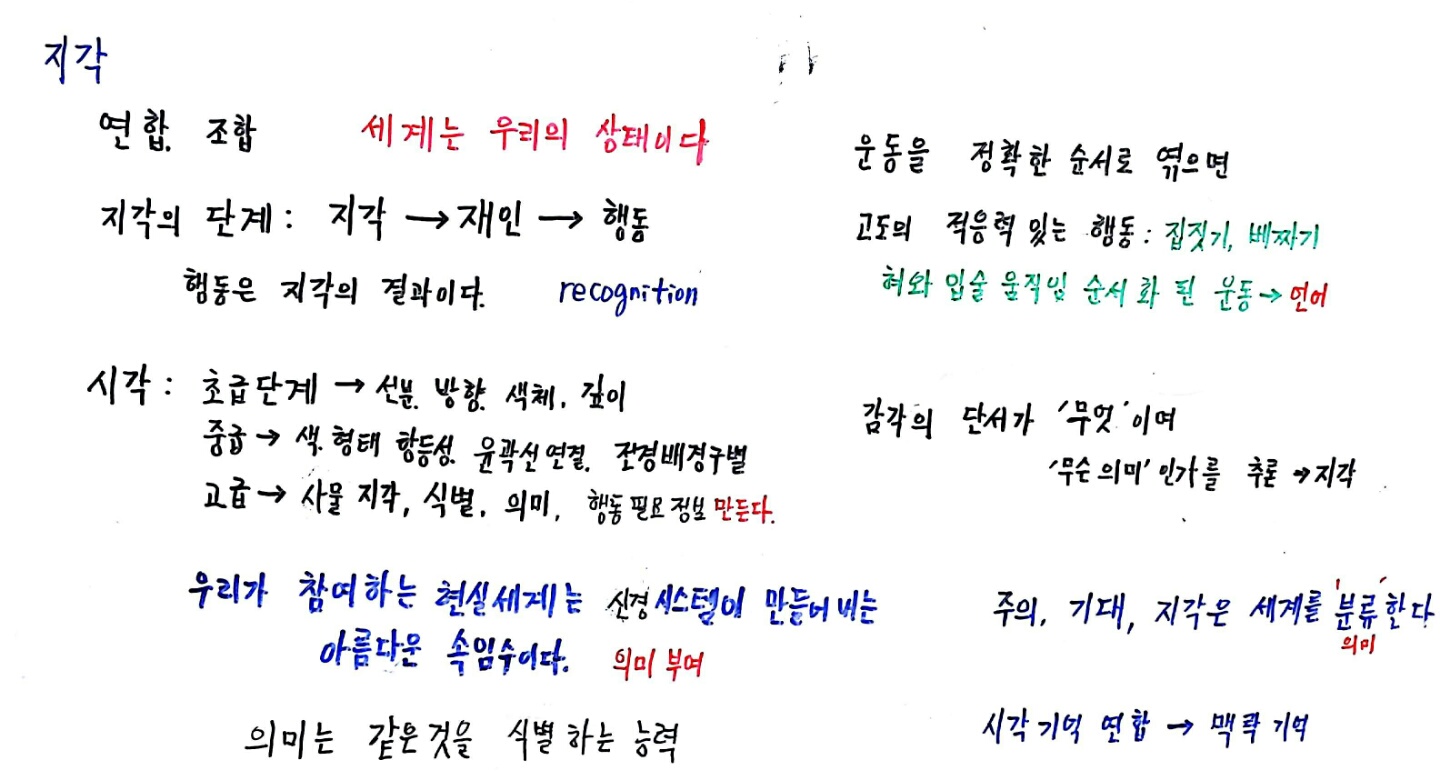 지각
연합. 조합 세계는 우리의 상태이다
지각의 단계: 지각 → 재인 → 행동
행동은 지각의 결과이다. recognition
시각: 초급단계 → 선분. 방향. 색체. 깊이
중급 → 색. 형태 항등성. 윤곽선 연결. 전경배경구별
고급 → 사물 지각, 식별, 의미, 행동 필요 정보 만든다.
우리가 참여하는 현실세계는 신경 시스템이 만들어 내는
아름다운 속임수이다. 의미 부여
의미는 같은것을 식별 하는 능력
운동을 정확한 순서로 엮으면
고도의 적응력 있는 행동: 집짓기, 베짜기
혀와 입술 움직임 순서 화 된 운동 → 언어
감각의 단서가 '무엇'이며
'무슨 의미'인가를 추론 → 지각
주의, 기대, 지각은 세계를 '분류'한다
의미
시각 기억 연합 → 맥락 기억